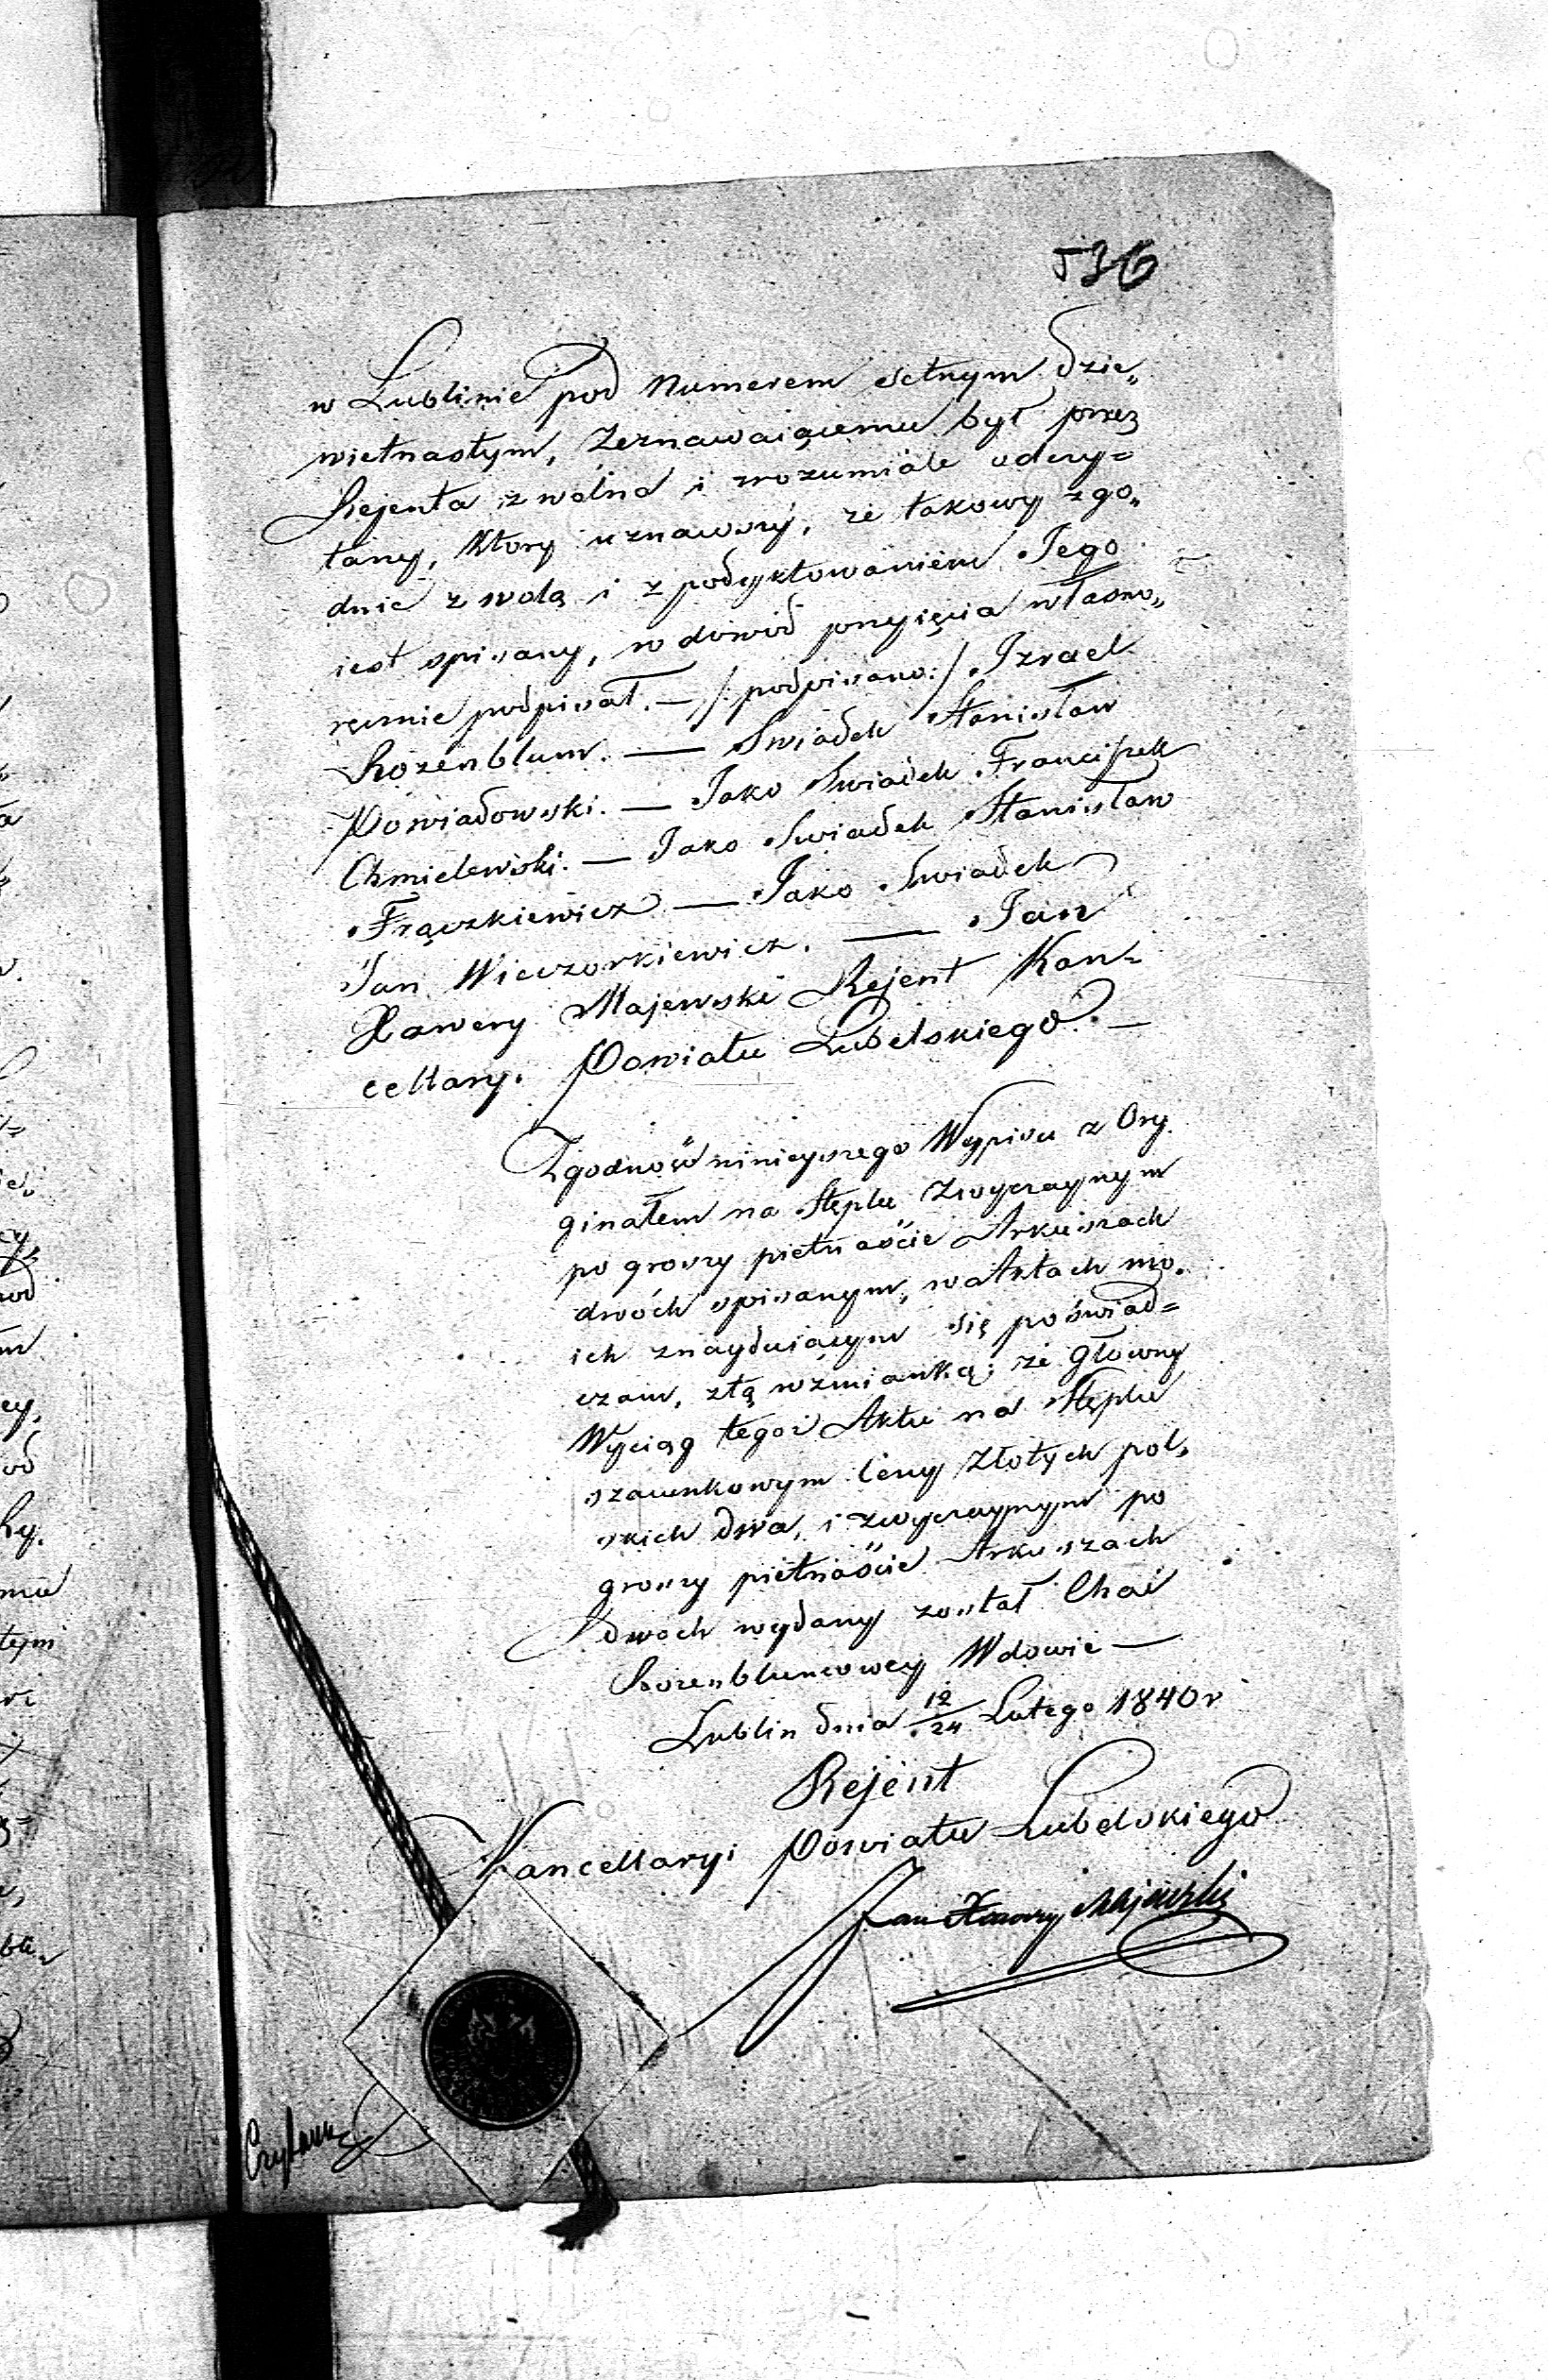 536
w Lublinie pod Numerem setnym dzie„
wietnastym, Zeznawaiącemu był przez
Rejenta zwolna i zrozumiale odczy=
tany, który uznawszy, że takowy zgo„
dnie z wolą i z podyktowaniem Jego
iest spisany, w dowód przyięcia własno„
ręcznie podpisał. — /: podpisano :/ Izrael
Rozenblum. — Swiadek Stanisław
Powiadowski. — Jako Swiadek Franciszek
Chmielewski. — Jako Swiadek Stanisław
Frączkiewicz — Jako Swiadek
Jan Wieczorkiewicz. — Jan
Xawery Majewski Rejent Kan=
cellaryi Powiatu Lubelskiego. —
Zgodność ninieyszego Wypisu z Ory
ginałem na Stęplu Zwyczaynym
po groszy pietnaście Arkuszach
dwóch spisanym, w Aktach mo.
ich znayduiącym się poświad=
czam, z tą wzmianką; że główny
Wyciąg tegoż Aktu na Stęplu
szacunkowym Ceny Złotych pol„
skich dwa, i zwyczaynym po
groszy pietnaście Arkuszach
dwóch wydany został Chai
Rozenblumowey Wdowie —
Lublin dnia 12/24 Lutego 1840 r
Rejent
Kancellaryi Powiatu Lubelskiego
Jan Xawery Majewski